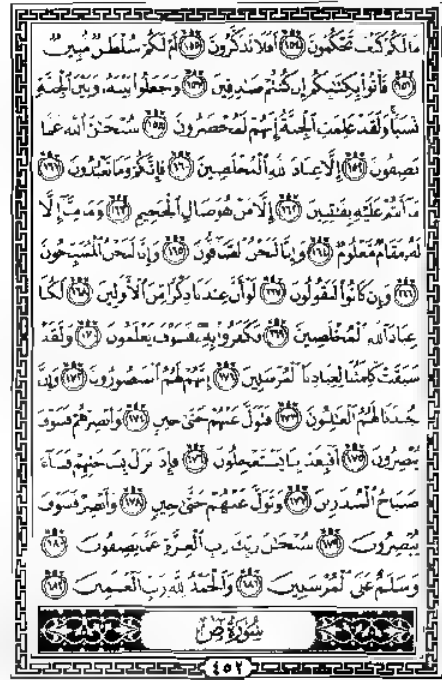 مَا لَكُمْ كَيْفَ تَحْكُمُونَ ١٥٤ أَفَلَا تَذَكَّرُونَ ١٥٥ أَمْ لَكُمْ سُلْطَٰنٌ مُّبِينٌ
١٥٦ فَأْتُوا۟ بِكِتَٰبِكُمْ إِن كُنتُمْ صَٰدِقِينَ ١٥٧ وَجَعَلُوا۟ بَيْنَهُۥ وَبَيْنَ ٱلْجِنَّةِ
نَسَبًا وَلَقَدْ عَلِمَتِ ٱلْجِنَّةُ إِنَّهُمْ لَمُحْضَرُونَ ١٥٨ سُبْحَٰنَ ٱللَّهِ عَمَّا
يَصِفُونَ ١٥٩ إِلَّا عِبَادَ ٱللَّهِ ٱلْمُخْلَصِينَ ١٦٠ فَإِنَّكُمْ وَمَا تَعْبُدُونَ ١٦١
مَآ أَنتُمْ عَلَيْهِ بِفَٰتِنِينَ ١٦٢ إِلَّا مَنْ هُوَ صَالِ ٱلْجَحِيمِ ١٦٣ وَمَا مِنَّآ إِلَّا
لَهُۥ مَقَامٌ مَّعْلُومٌ ١٦٤ وَإِنَّا لَنَحْنُ ٱلصَّآفُّونَ ١٦٥ وَإِنَّا لَنَحْنُ ٱلْمُسَبِّحُونَ
١٦٦ وَإِن كَانُوا۟ لَيَقُولُونَ ١٦٧ لَوْ أَنَّ عِندَنَا ذِكْرًا مِّنَ ٱلْأَوَّلِينَ ١٦٨ لَكُنَّا
عِبَادَ ٱللَّهِ ٱلْمُخْلَصِينَ ١٦٩ فَكَفَرُوا۟ بِهِۦ فَسَوْفَ يَعْلَمُونَ ١٧٠ وَلَقَدْ
سَبَقَتْ كَلِمَتُنَا لِعِبَادِنَا ٱلْمُرْسَلِينَ ١٧١ إِنَّهُمْ لَهُمُ ٱلْمَنصُورُونَ ١٧٢ وَإِنَّ
جُندَنَا لَهُمُ ٱلْغَٰلِبُونَ ١٧٣ فَتَوَلَّ عَنْهُمْ حَتَّىٰ حِينٍ ١٧٤ وَأَبْصِرْهُمْ فَسَوْفَ
يُبْصِرُونَ ١٧٥ أَفَبِعَذَابِنَا يَسْتَعْجِلُونَ ١٧٦ فَإِذَا نَزَلَ بِسَاحَتِهِمْ فَسَآءَ
صَبَاحُ ٱلْمُنذَرِينَ ١٧٧ وَتَوَلَّ عَنْهُمْ حَتَّىٰ حِينٍ ١٧٨ وَأَبْصِرْ فَسَوْفَ
يُبْصِرُونَ ١٧٩ سُبْحَٰنَ رَبِّكَ رَبِّ ٱلْعِزَّةِ عَمَّا يَصِفُونَ ١٨٠
وَسَلَٰمٌ عَلَى ٱلْمُرْسَلِينَ ١٨١ وَٱلْحَمْدُ لِلَّهِ رَبِّ ٱلْعَٰلَمِينَ ١٨٢
سُورَةُ صٓ
٤٥٢